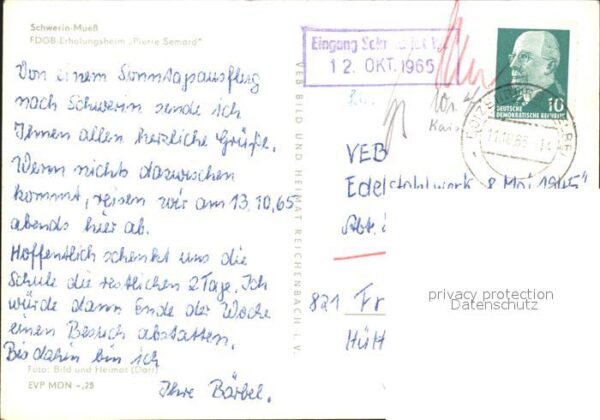 Schwerin-Mueß
FDGB-Erholungsheim „Pierre Semard"
Von einem Sonntagsausflug
nach Schwerin sende ich
Ihnen allen herzliche Grüße.
Wenn nichts dazwischen
kommt, reisen wir am 13.10.65
abends hier ab.
Hoffentlich schenkt uns die
Schule die restlichen 2 Tage. Ich
würde dann Ende der Woche
einen Besuch abstatten.
Bis dahin bin ich
Ihre Bärbel.
Foto: Bild und Heimat (Darr)
EVP MDN -,25
VEB BILD UND HEIMAT REICHENBACH i. V.
Eingang
12. OKT. 1965
DEUTSCHE
DEMOKRATISCHE REPUBLIK
10
VEB
Edelstahlwerk „8. Mai 1945"
Abt.
821 Fr
Hütt
privacy protection
Datenschutz